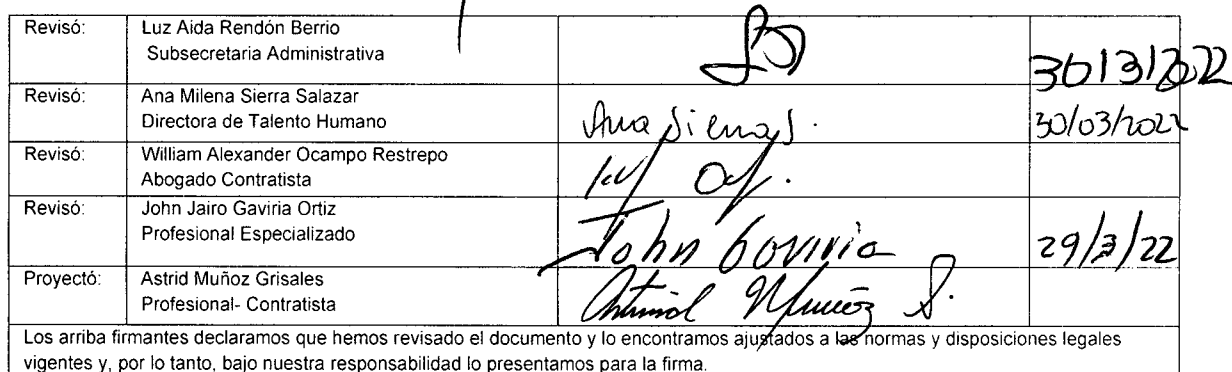 Revisó: Luz Aida Rendón Berrio
Subsecretaria Administrativa
30/3/2022
Revisó: Ana Milena Sierra Salazar
Directora de Talento Humano
Ana Sierra S. 30/03/2022
Revisó: William Alexander Ocampo Restrepo
Abogado Contratista
Revisó: John Jairo Gaviria Ortiz
Profesional Especializado
John Gaviria 29/3/22
Proyectó: Astrid Muñoz Grisales
Profesional- Contratista
Muñoz
Los arriba firmantes declaramos que hemos revisado el documento y lo encontramos ajustados a las normas y disposiciones legales
vigentes y, por lo tanto, bajo nuestra responsabilidad lo presentamos para la firma.